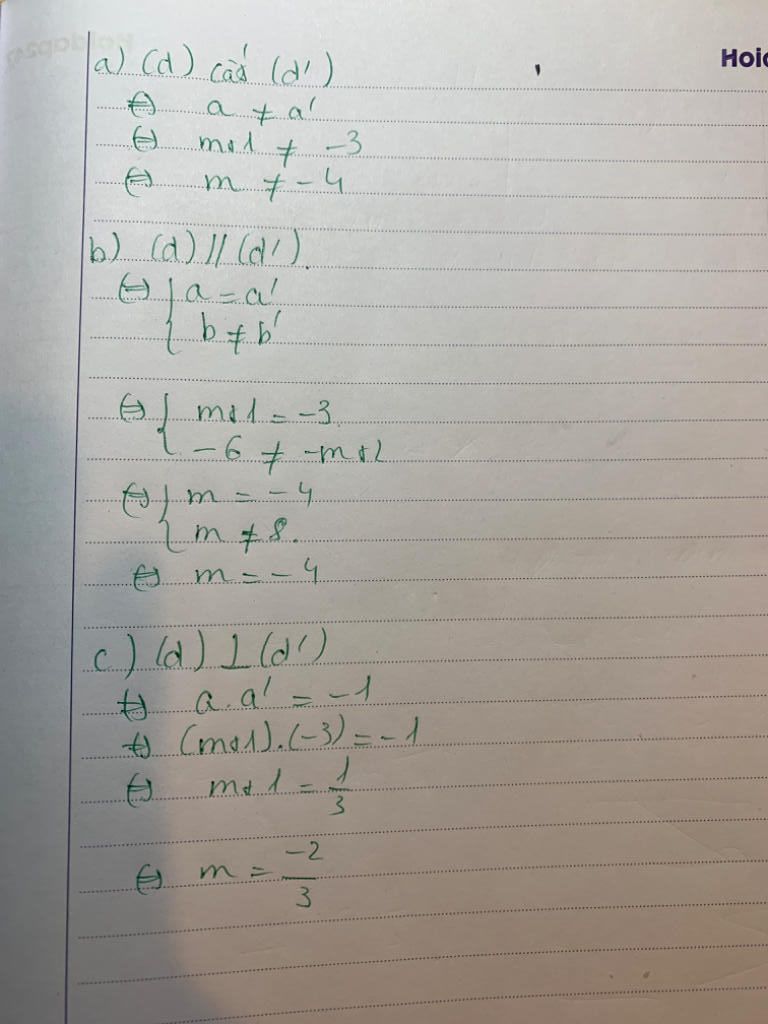 Hoid
a) (d) cắt (d')
⇔ a ≠ a'
⇔ m+1 ≠ -3
⇔ m ≠ -4
b) (d) // (d').
⇔ { a = a'
b ≠ b'
⇔ { m+1 = -3
-6 ≠ -m+2
⇔ { m = -4
m ≠ 8.
⇔ m = -4
c) (d) ⊥ (d')
⇔ a.a' = -1
⇔ (m+1).(-3) = -1
⇔ m+1 = 1/3
⇔ m = -2/3